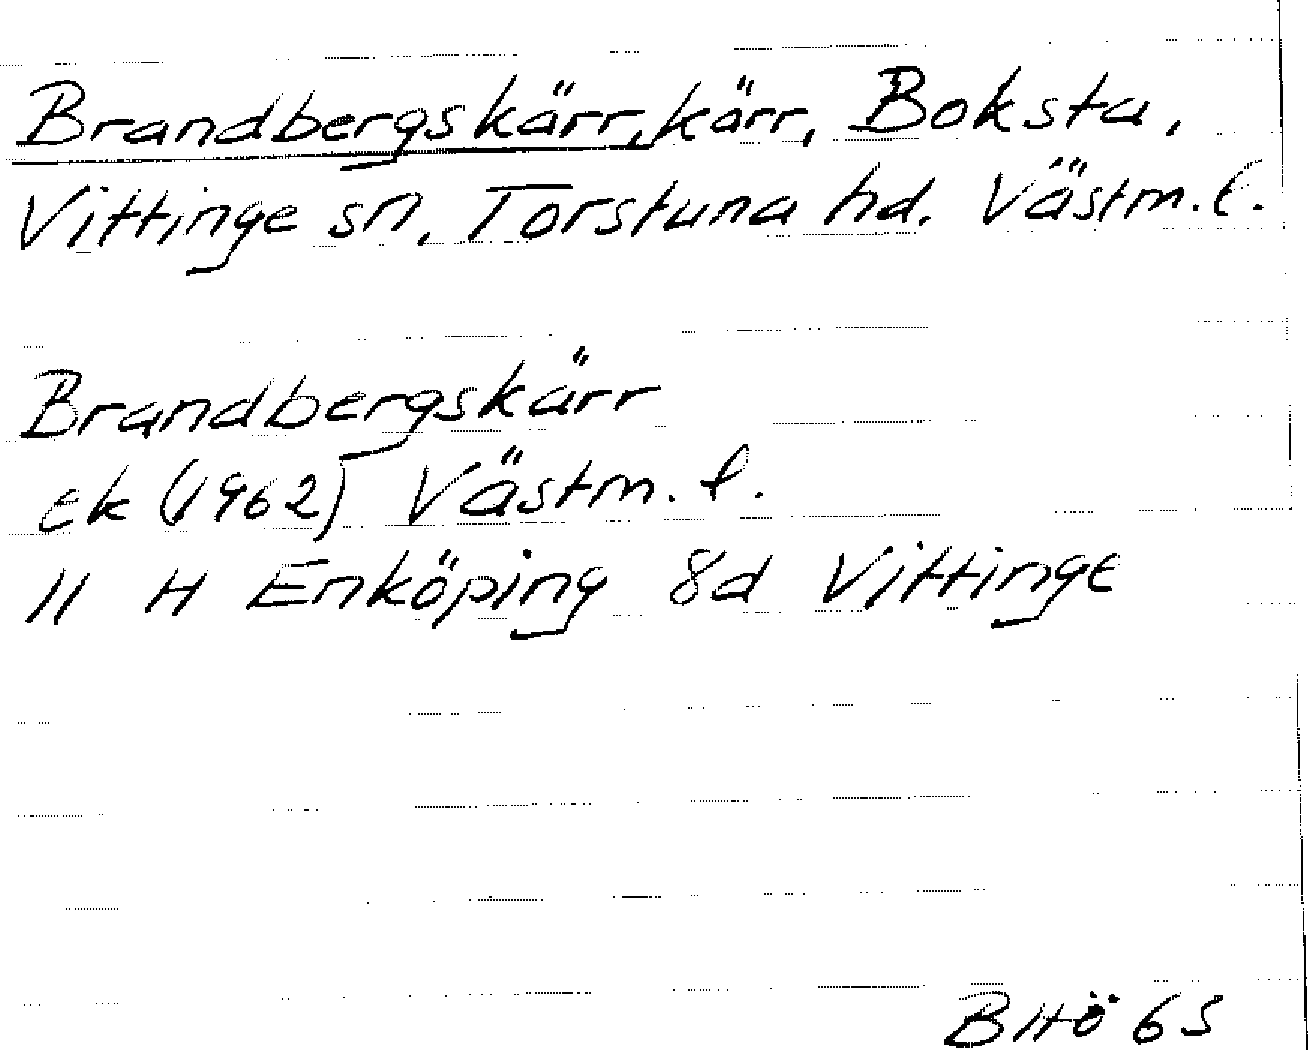 Brandbergskärr, kärr, Boksta,
Vittinge sn. Torstuna hd. Västm. l.
Brandbergskärr
Ek (1962) Västm. l.
11 H Enköping 8d Vittinge
BHö 65